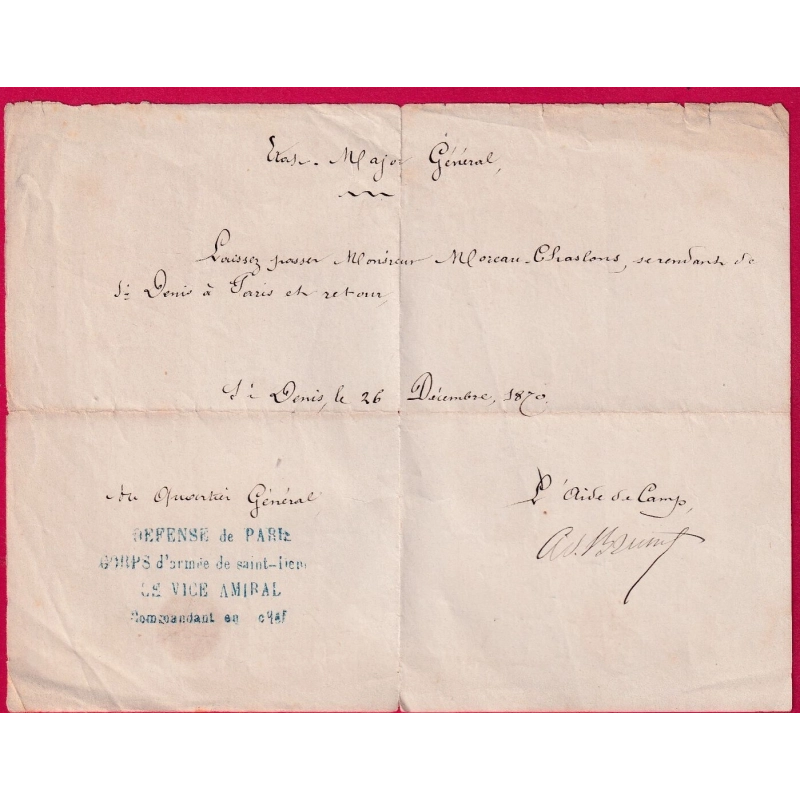 Etat-Major Général,
Laissez passer Monsieur Moreau-Chaslons, se rendant de
St Denis à Paris et retour,
St Denis, le 26 Décembre, 1870.
Au Quartier Général,
L'Aide de Camp,
DEFENSE de PARIS
CORPS d'armée de saint-Denis
LE VICE AMIRAL
Commandant en chef